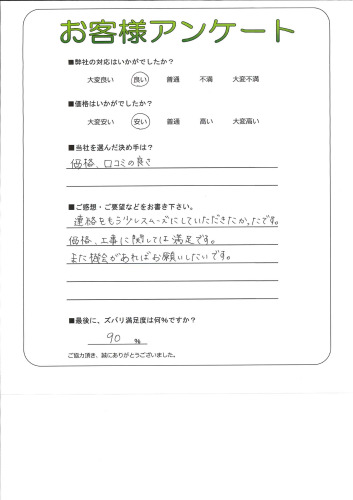 お客様アンケート
■弊社の対応はいかがでしたか?
大変良い 良い 普通 不満 大変不満
■価格はいかがでしたか?
大変安い 安い 普通 高い 大変高い
■当社を選んだ決め手は?
価格、口コミの良さ
■ご感想・ご要望などをお書き下さい。
連絡をもう少しスムーズにしていただきたかったです。
価格、工事に関しては満足です。
また機会があればお願いしたいです。
■最後に、ズバリ満足度は何%ですか?
90 %
ご協力頂き、誠にありがとうございました。